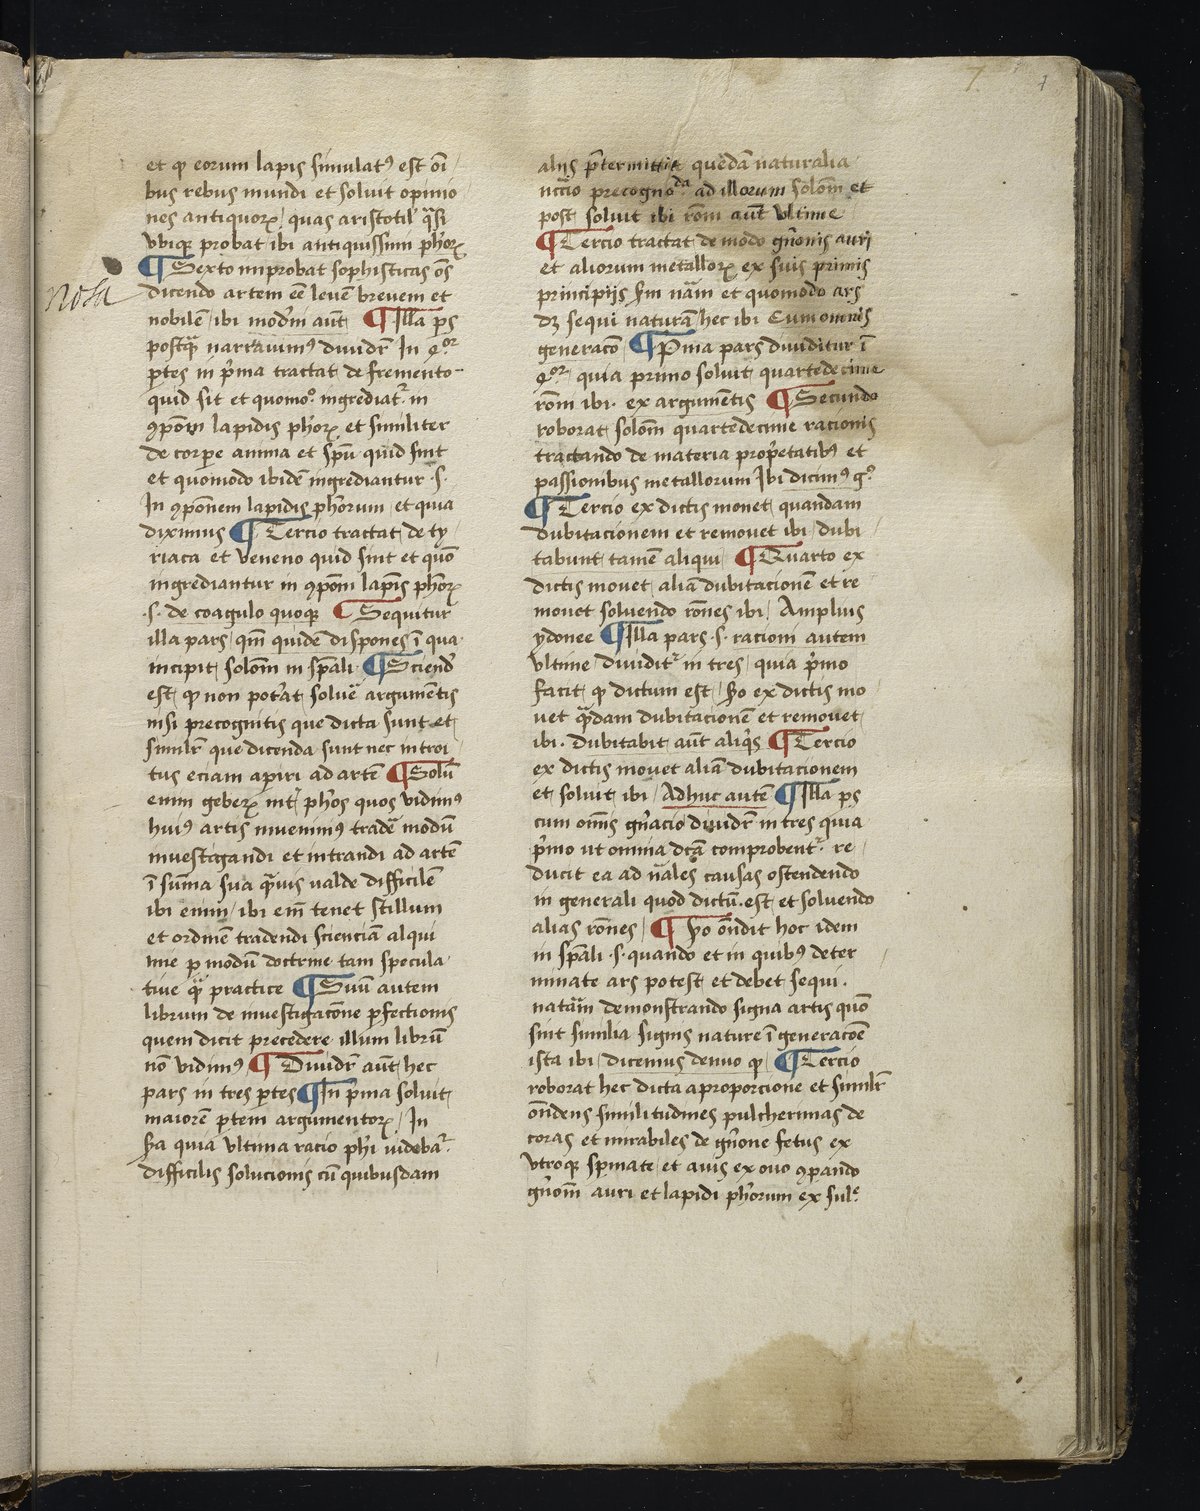 7
et qꝫ eorum lapis simulatꝰ est oı̄
bus rebus mundi et soluit opinio
nes antiquoꝝ / quas aristotilˀ q̄si
vbiqꝫ probat ibi antiquissimi ph̄oꝝ
¶ Sexto improbat sophisticas oēs
nota
dicendo artem eē leuē breuem et
nobilē ibi modm̄ aūt ¶ Illa ps̄
postq̄ narrauimꝰ diuidr̄ In qͦꝛ
ptes in p̄ma tractat de fremento
quid sit et quomoͦ ingrediatᷣ in
ꝯpōm lapidis ph̄oꝝ et similiter
de corpe anima et spū quid sint
et quomodo ibidē ingrediantur .s.
In ꝯpōnem lapidis ph̄orum et quia
diximus ¶ Tercio tractat de ty
riaca et veneno quid sint et quō
ingrediantur in ꝯpōm lapis ph̄oꝝ
.s. de coagulo quoqꝫ ¶ Sequitur
illa pars / qm̄ quidē dispones ī qua
incipit solōm in sp̄ali ¶ Sciendꝰ
est qꝫ non potˀat soluē argumētis
nisi precognitis que dicta sunt et
similr̄ que dicenda sunt nec introi
tus eciam apiri ad artē ¶ Solū
enim geberꝝ int̄ ph̄os quos vidimꝰ
huiꝰ artis inuenimꝰ tradē modū
inuestigandi et intrandi ad artē
ī suma sua q̄uis valde difficilē
ibi enim / ibi em̄ tenet stillum
et ordinē tradendi scienciā alqui
mie p modū doctrine tam specula
tiue q̄ practice ¶ Suū autem
librum de inuestigacōne pfectionis
quem dicit precedere illum librū
nō vidimꝰ ¶ Diuidr̄ aūt hec
pars in tres ptes ¶ In p̄ma soluit
maiorē ptem argumentoꝝ / In
scd̄a quia vltima racio ph̄i videbatᷣ
difficilis solucionis cū quibusdam
alijs p̄termittit quedā naturalia
nc̄cio precognoᵈᵃ ad illorum solōm et
post soluit ibi rōm aūt vltime
¶ Tercio tractat de modo gn̄onis auri
et aliorum metalloꝝ ex suis primis
principijs scd̄m nām et quomodo ars
dꝫ sequi naturā hec ibi Cum omnis
generacō ¶ P̄ma pars diuiditur ī
qͦꝛ quia primo soluit quartedecime
rōm ibi . ex argumētis ¶ Secundo
roborat solōm quartedecime racionis
tractando de materia propetatibꝰ et
passionibus metallorum Ibi dicimꝰ gͦ
¶ Tercio ex dictis monet quandam
dubitacionem et remouet ibi / dubi
tabunt tamē aliqui ¶ Quarto ex
dictis mouet aliā dubitacionē et re
mouet soluendo rōnes ibi / Amplius
ydonee ¶ Illa pars .s. racioni autem
vltime / diuiditᷣ in tres / quia p̄mo
facit qꝫ dictum est / scd̄o ex dictis mo
uet q̄dam dubitacionē et remouet
ibi . dubitabit aūt aliqͥs ¶ Tercio
ex dictis mouet aliā dubitacionem
et soluit ibi / Adhuc autē ¶ Illa ps
cum om̄is gn̄acio diuidr̄ in tres quia
p̄mo ut omnia dcā comprobentᷣ re
ducit ea ad nāles causas ostendendo
in generali quod dictū est et soluendo
alias rōnes / ¶ scd̄o on̄dit hoc idem
in sp̄ali .s. quando et in quibꝰ deter
minate ars potest et debet sequi
natām demonstrando signa artis quō
sint similia signis nature ī generacōe
ista ibi / dicemus denuo qꝫ ¶ Tercio
roborat hec dicta aproporcione et similr̄
on̄dens similitudines pulcherimas de
coras et mirabiles de gn̄one fetus ex
vtroqꝫ spmate et auis ex ouo ꝯpando
gn̄om auri et lapidi ph̄orum ex sulᵉ